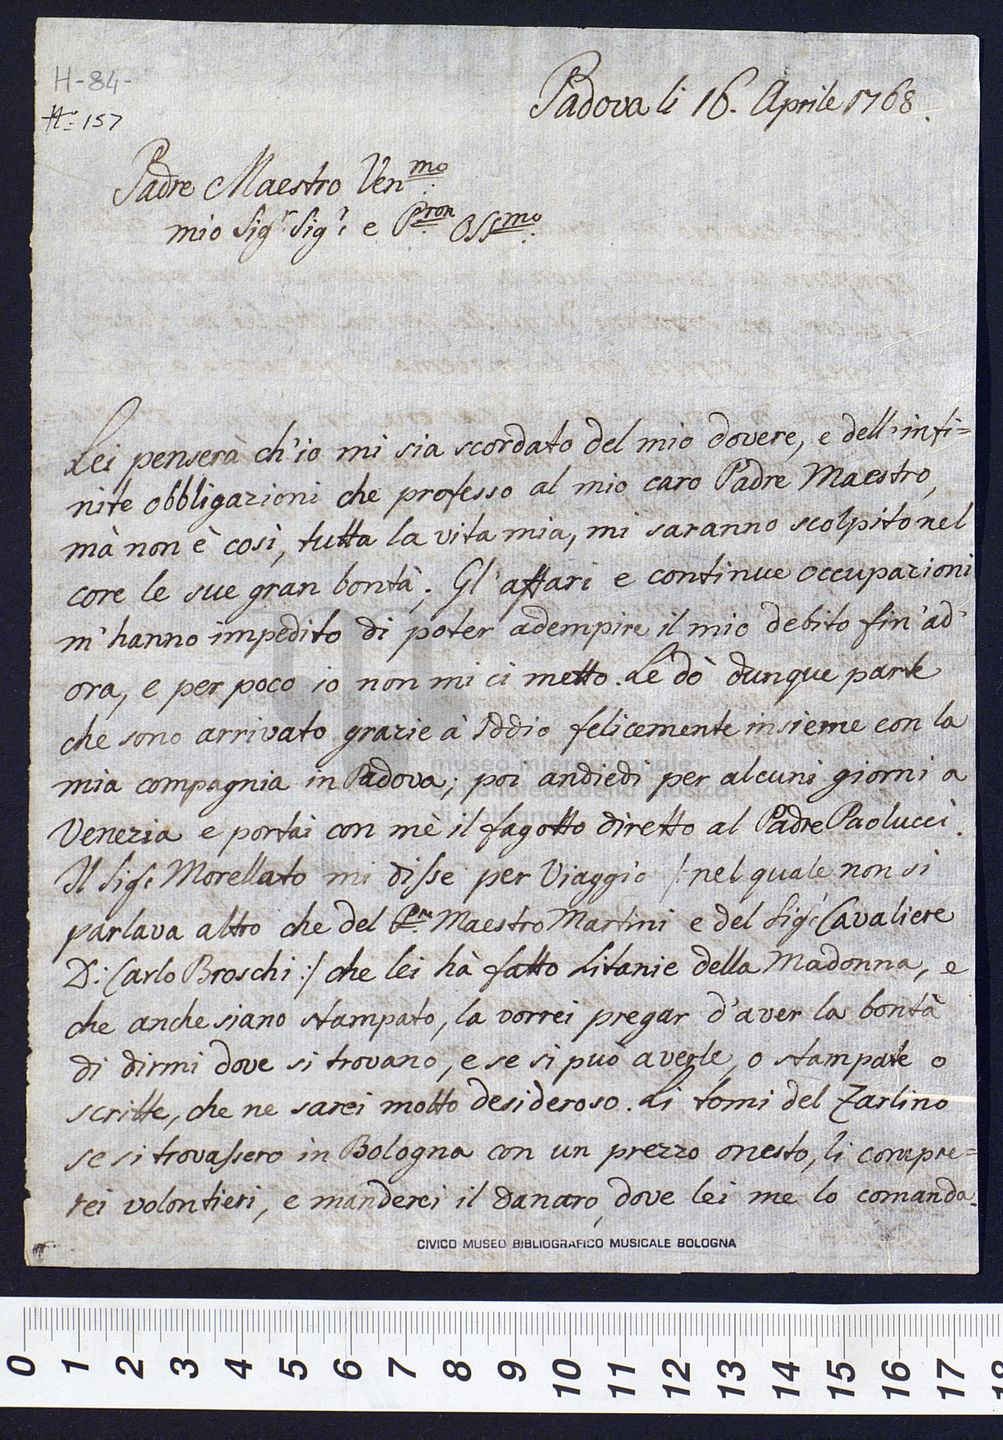 H-84-
H: 157
Padova li 16. Aprile 1768.
Padre Maestro Ven:mo
mio Sig:r Sig:r e P:ron Oss:mo
Lei penserà ch'io mi sia scordato del mio dovere, e dell'infi=
nite obbligazioni che professo al mio caro Padre Maestro,
mà non è così, tutta la vita mia, mi saranno scolpito nel
core le sue gran bontà. Gl'affari e continue occupazioni
m'hanno impedito di poter adempire il mio debito fin'ad'
ora, e per poco io non mi ci metto. Le dò dunque parte
che sono arrivato grazie à Iddio felicemente insieme con la
mia compagnia in Padova; poi andiedi per alcuni giorni a
Venezia e portai con mè il fagotto diretto al Padre Paolucci.
Il Sig:r Morellato mi disse per Viaggio /: nel quale non si
parlava altro che del P:re Maestro Martini e del Sig:r Cavaliere
D: Carlo Broschi :/ che lei hà fatto Litanie della Madonna, e
che anche siano stampato, la vorrei pregar d'aver la bontà
di dirmi dove si trovano, e se si può averle, o stampate o
scritte, che ne sarei molto desideroso. Li tomi del Zarlino
se si trovassero in Bologna con un prezzo onesto, li compre=
rei volontieri, e manderei il danaro, dove lei me lo comanda.
museo internazionale
e biblioteca della musica
di bologna
CIVICO MUSEO BIBLIOGRAFICO MUSICALE BOLOGNA
0 1 2 3 4 5 6 7 8 9 10 11 12 13 14 15 16 17 18